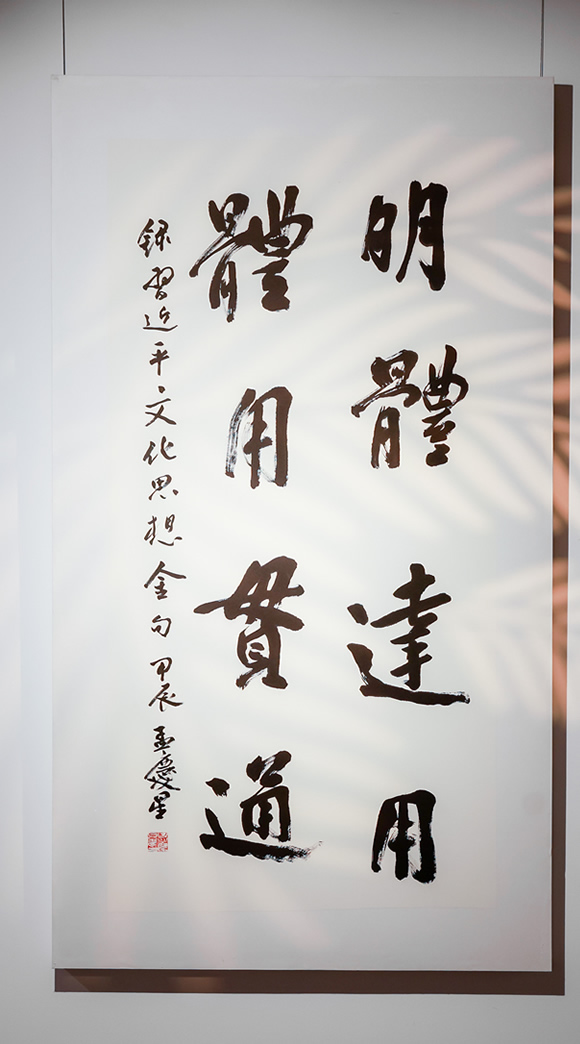 明體達用
體用貫通
録習近平文化思想金句甲辰孟慶星